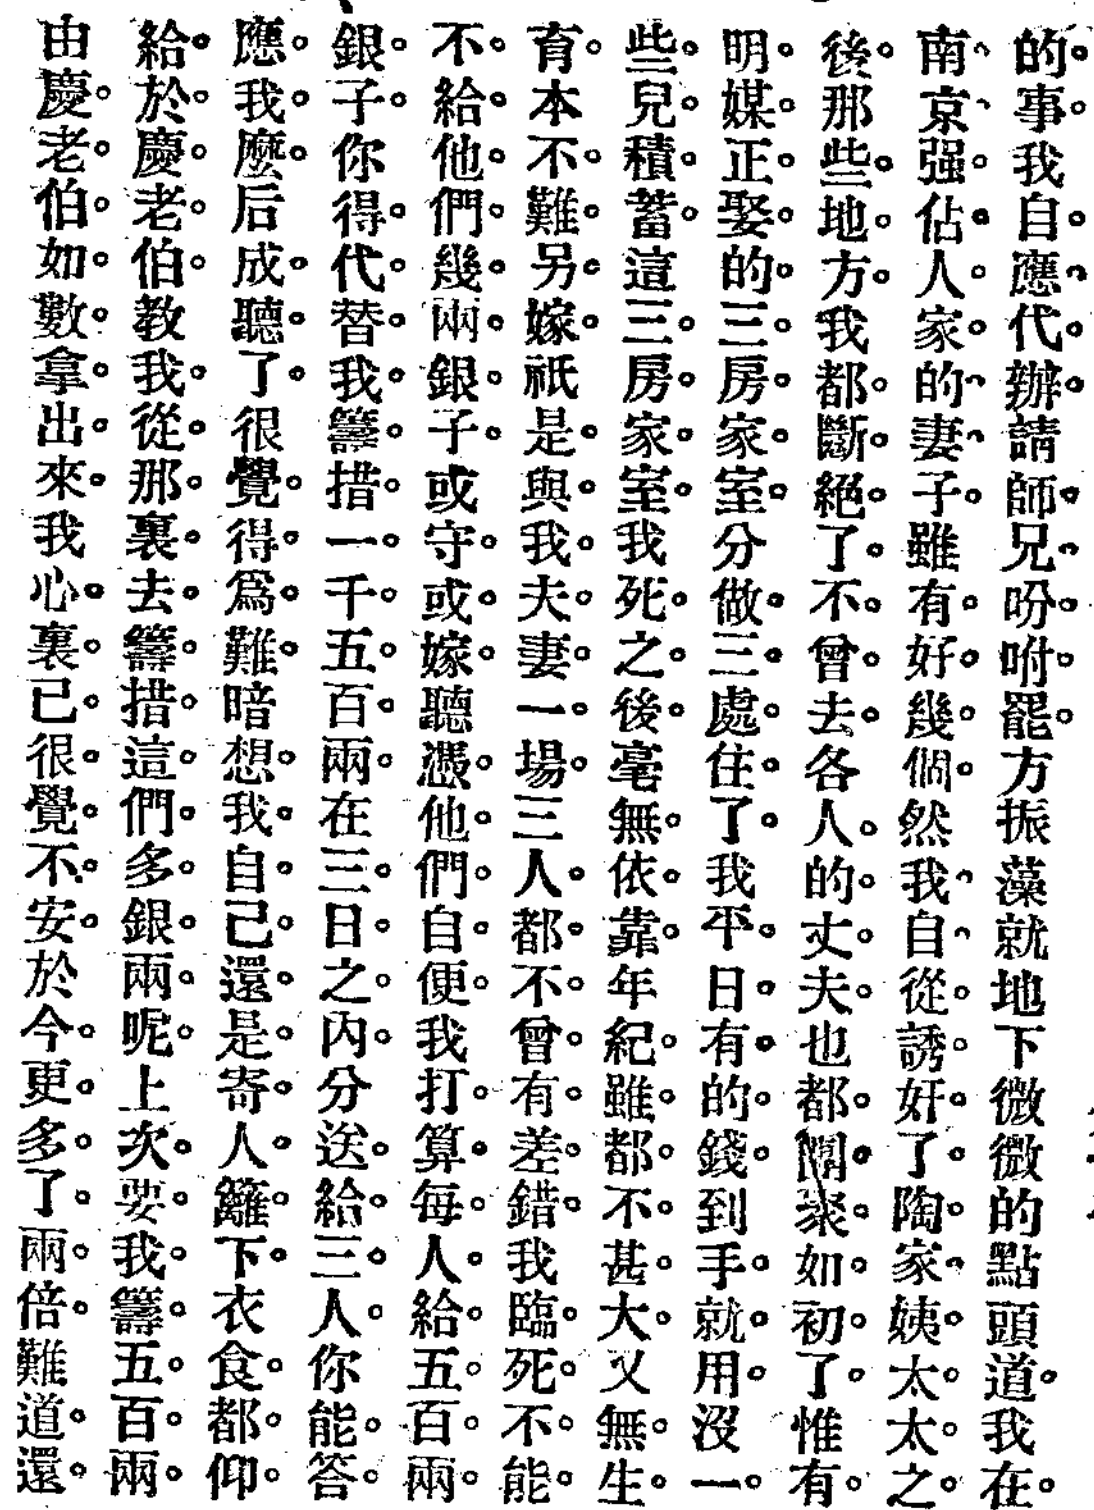 的事我自應代辦請師兄吩咐罷方振藻就地下微微的點頭道我在
南京强佔人家的妻子雖有好幾個然我自從誘奸了陶家姨太太之
後那些地方我都斷絕了不曾去各人的丈夫也都團聚如初了惟有
明媒正娶的三房家室分做三處住了我平日有的錢到手就用沒一
些兒積蓄這三房家室我死之後毫無依靠年紀雖都不甚大又無生
育本不難另嫁祇是與我夫妻一場三人都不曾有差錯我臨死不能
不給他們幾兩銀子或守或嫁聽憑他們自便我打算每人給五百兩
銀子你得代替我籌措一千五百兩在三日之內分送給三人你能答
應我麼后成聽了很覺得爲難暗想我自己還是寄人籬下衣食都仰
給於慶老伯教我從那裏去籌措這們多銀兩呢上次要我籌五百兩
由慶老伯如數拿出來我心裏已很覺不安於今更多了兩倍難道還